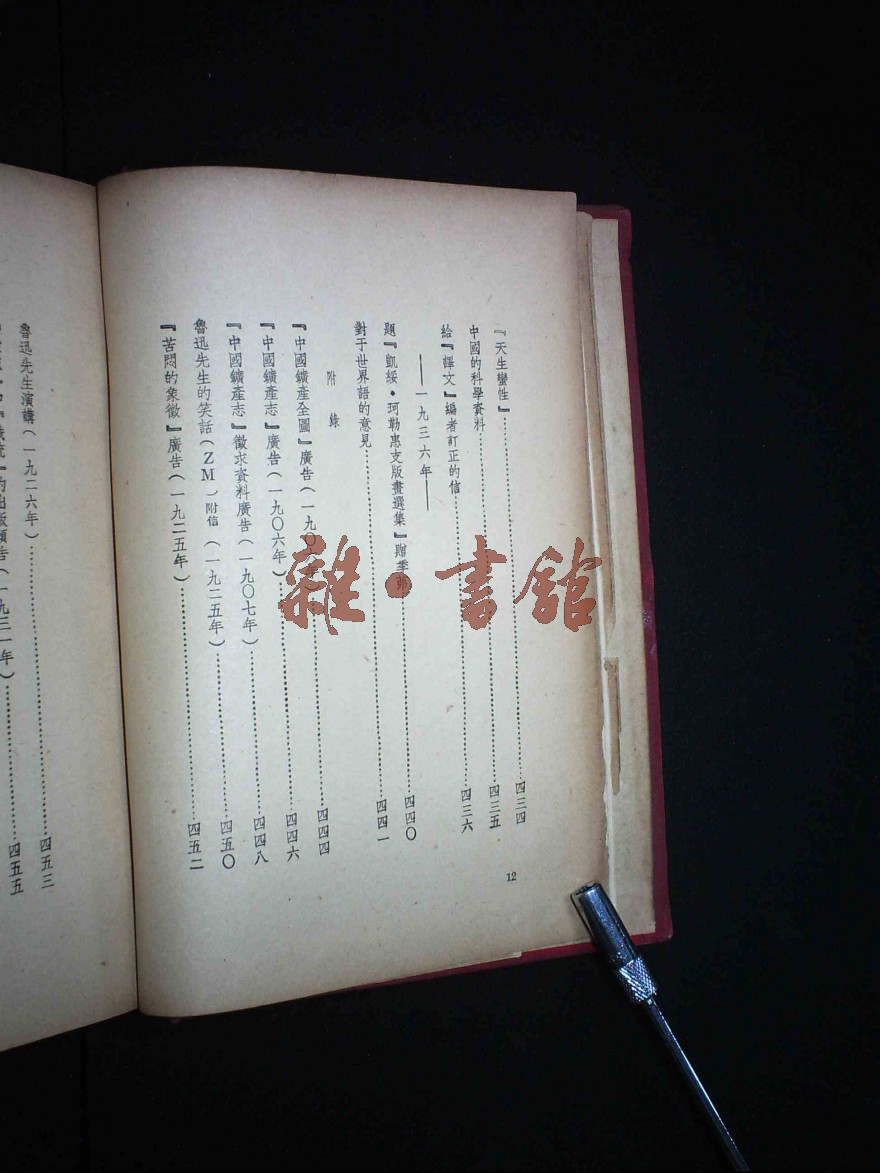 『天生蠻性』……四三四
中國的科學資料……四三五
給『譯文』編者訂正的信……四三六
——一九三六年——
題『凱綏·珂勒惠支版畫選集』贈季茀……四四〇
對于世界語的意見……四四一
附錄
『中國鑛產全圖』廣告(一九〇六年)……四四四
『中國鑛產志』廣告(一九〇六年)……四四六
『中國鑛產志』徵求資料廣告(一九〇七年)……四四八
魯迅先生的笑話(ZM)附信(一九二五年)……四五〇
『苦悶的象徵』廣告(一九二五年)……四五二
12
魯迅先生演講(一九二六年)……四五三
的出版預告(一九三一年)……四五五
雜·書館